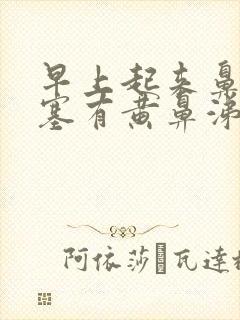 早上起来鼻
塞有黄鼻涕
阿依莎·瓦达